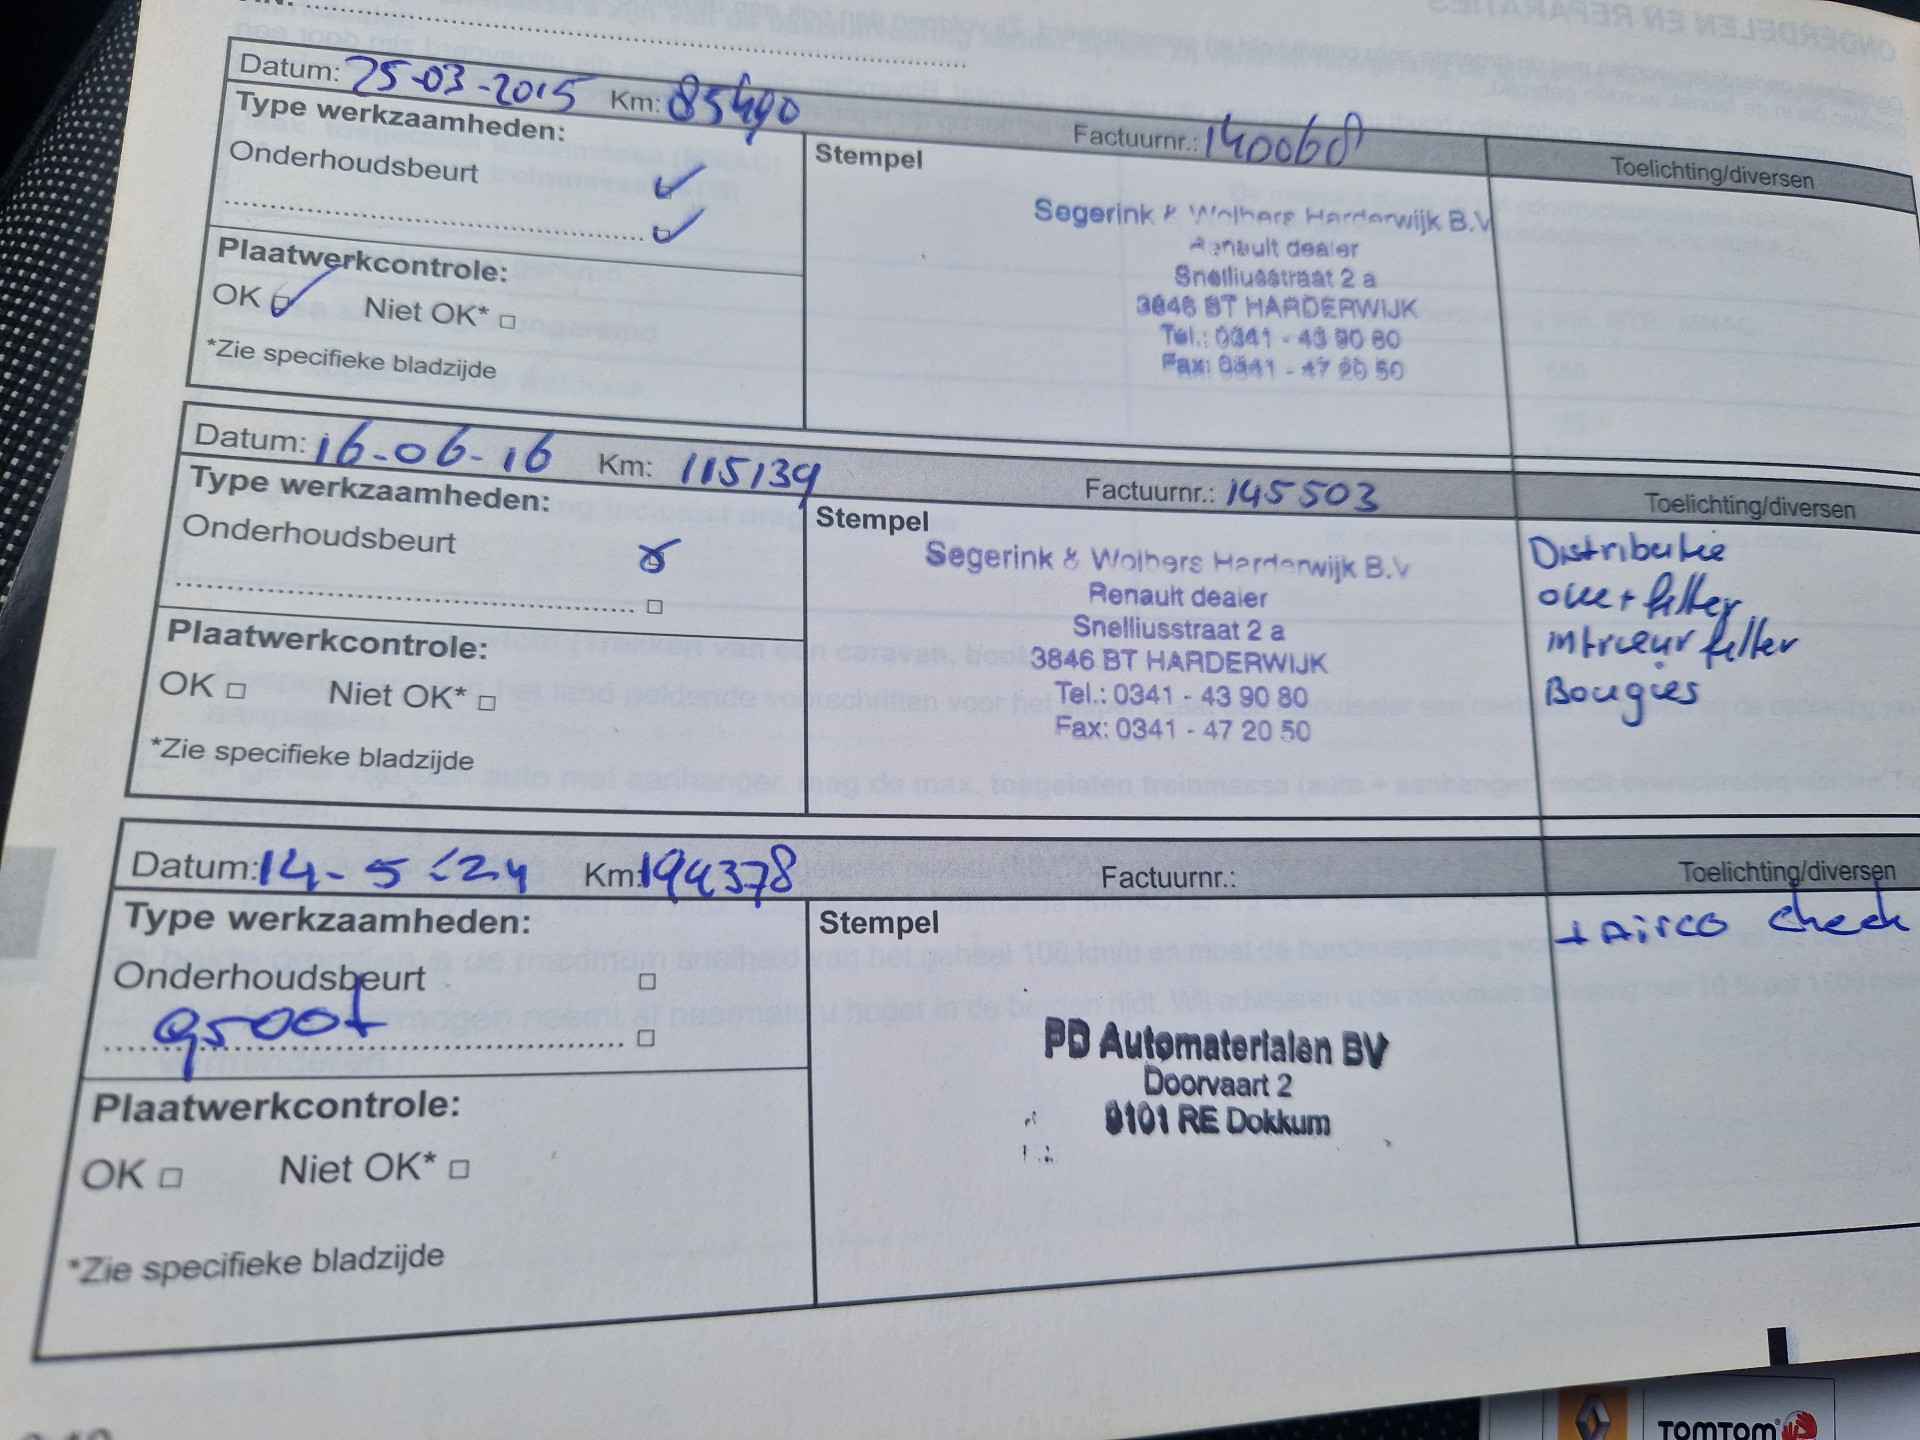 ONDERDELEN EN REPARATIES
Datum: 25-03-2015 Km: 85490 Factuurnr.: 140068 Toelichting/diversen
Type werkzaamheden:
Onderhoudsbeurt
Stempel
Segerink & Wolbers Harderwijk B.V
Renault dealer
Snelliusstraat 2 a
3846 BT HARDERWIJK
Tel.: 0341 - 43 90 80
Fax: 0341 - 47 20 50
Plaatwerkcontrole:
OK Niet OK*
*Zie specifieke bladzijde
Datum: 16-06-16 Km: 115139 Factuurnr.: 145503 Toelichting/diversen
Type werkzaamheden:
Onderhoudsbeurt
Stempel
Segerink & Wolbers Harderwijk B.V
Renault dealer
Snelliusstraat 2 a
3846 BT HARDERWIJK
Tel.: 0341 - 43 90 80
Fax: 0341 - 47 20 50
Distributie
olie + filter
intrieur filter
Bougies
Plaatwerkcontrole:
OK Niet OK*
*Zie specifieke bladzijde
Datum: 14-5-24 Km: 194378 Factuurnr.: Toelichting/diversen
Type werkzaamheden:
Onderhoudsbeurt
groot
Stempel
PD Automaterialen BV
Doorvaart 2
9101 RE Dokkum
+ Airco check
Plaatwerkcontrole:
OK Niet OK*
*Zie specifieke bladzijde
TOMTOM